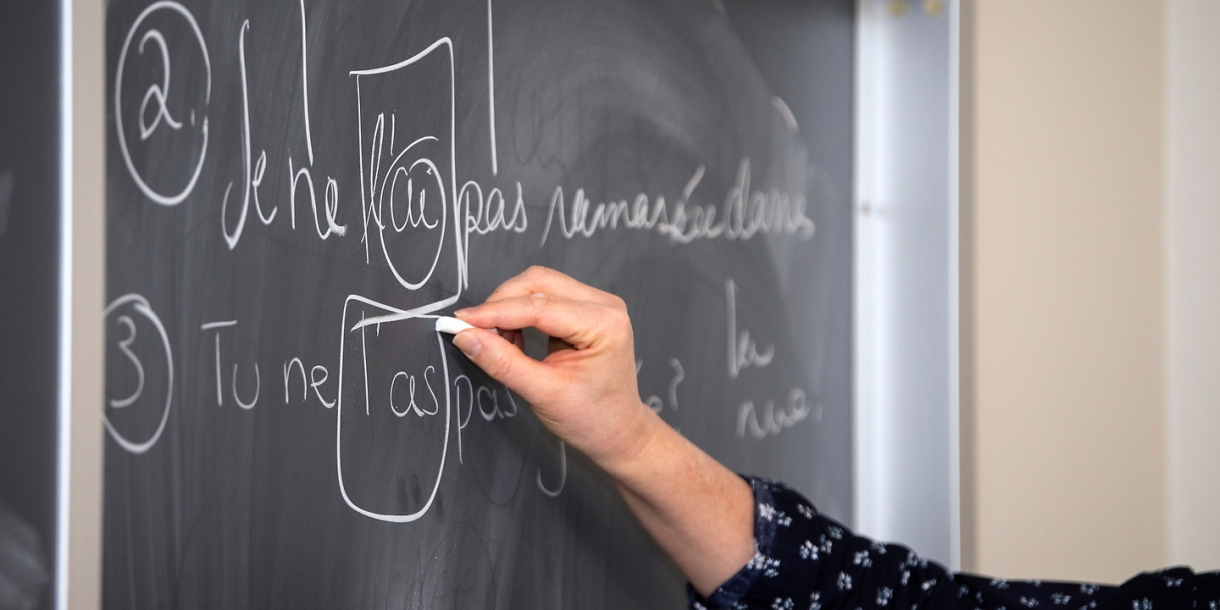 2. Je ne l'ai pas ramassée dans
la rue.
3 Tu ne l'as pas ?